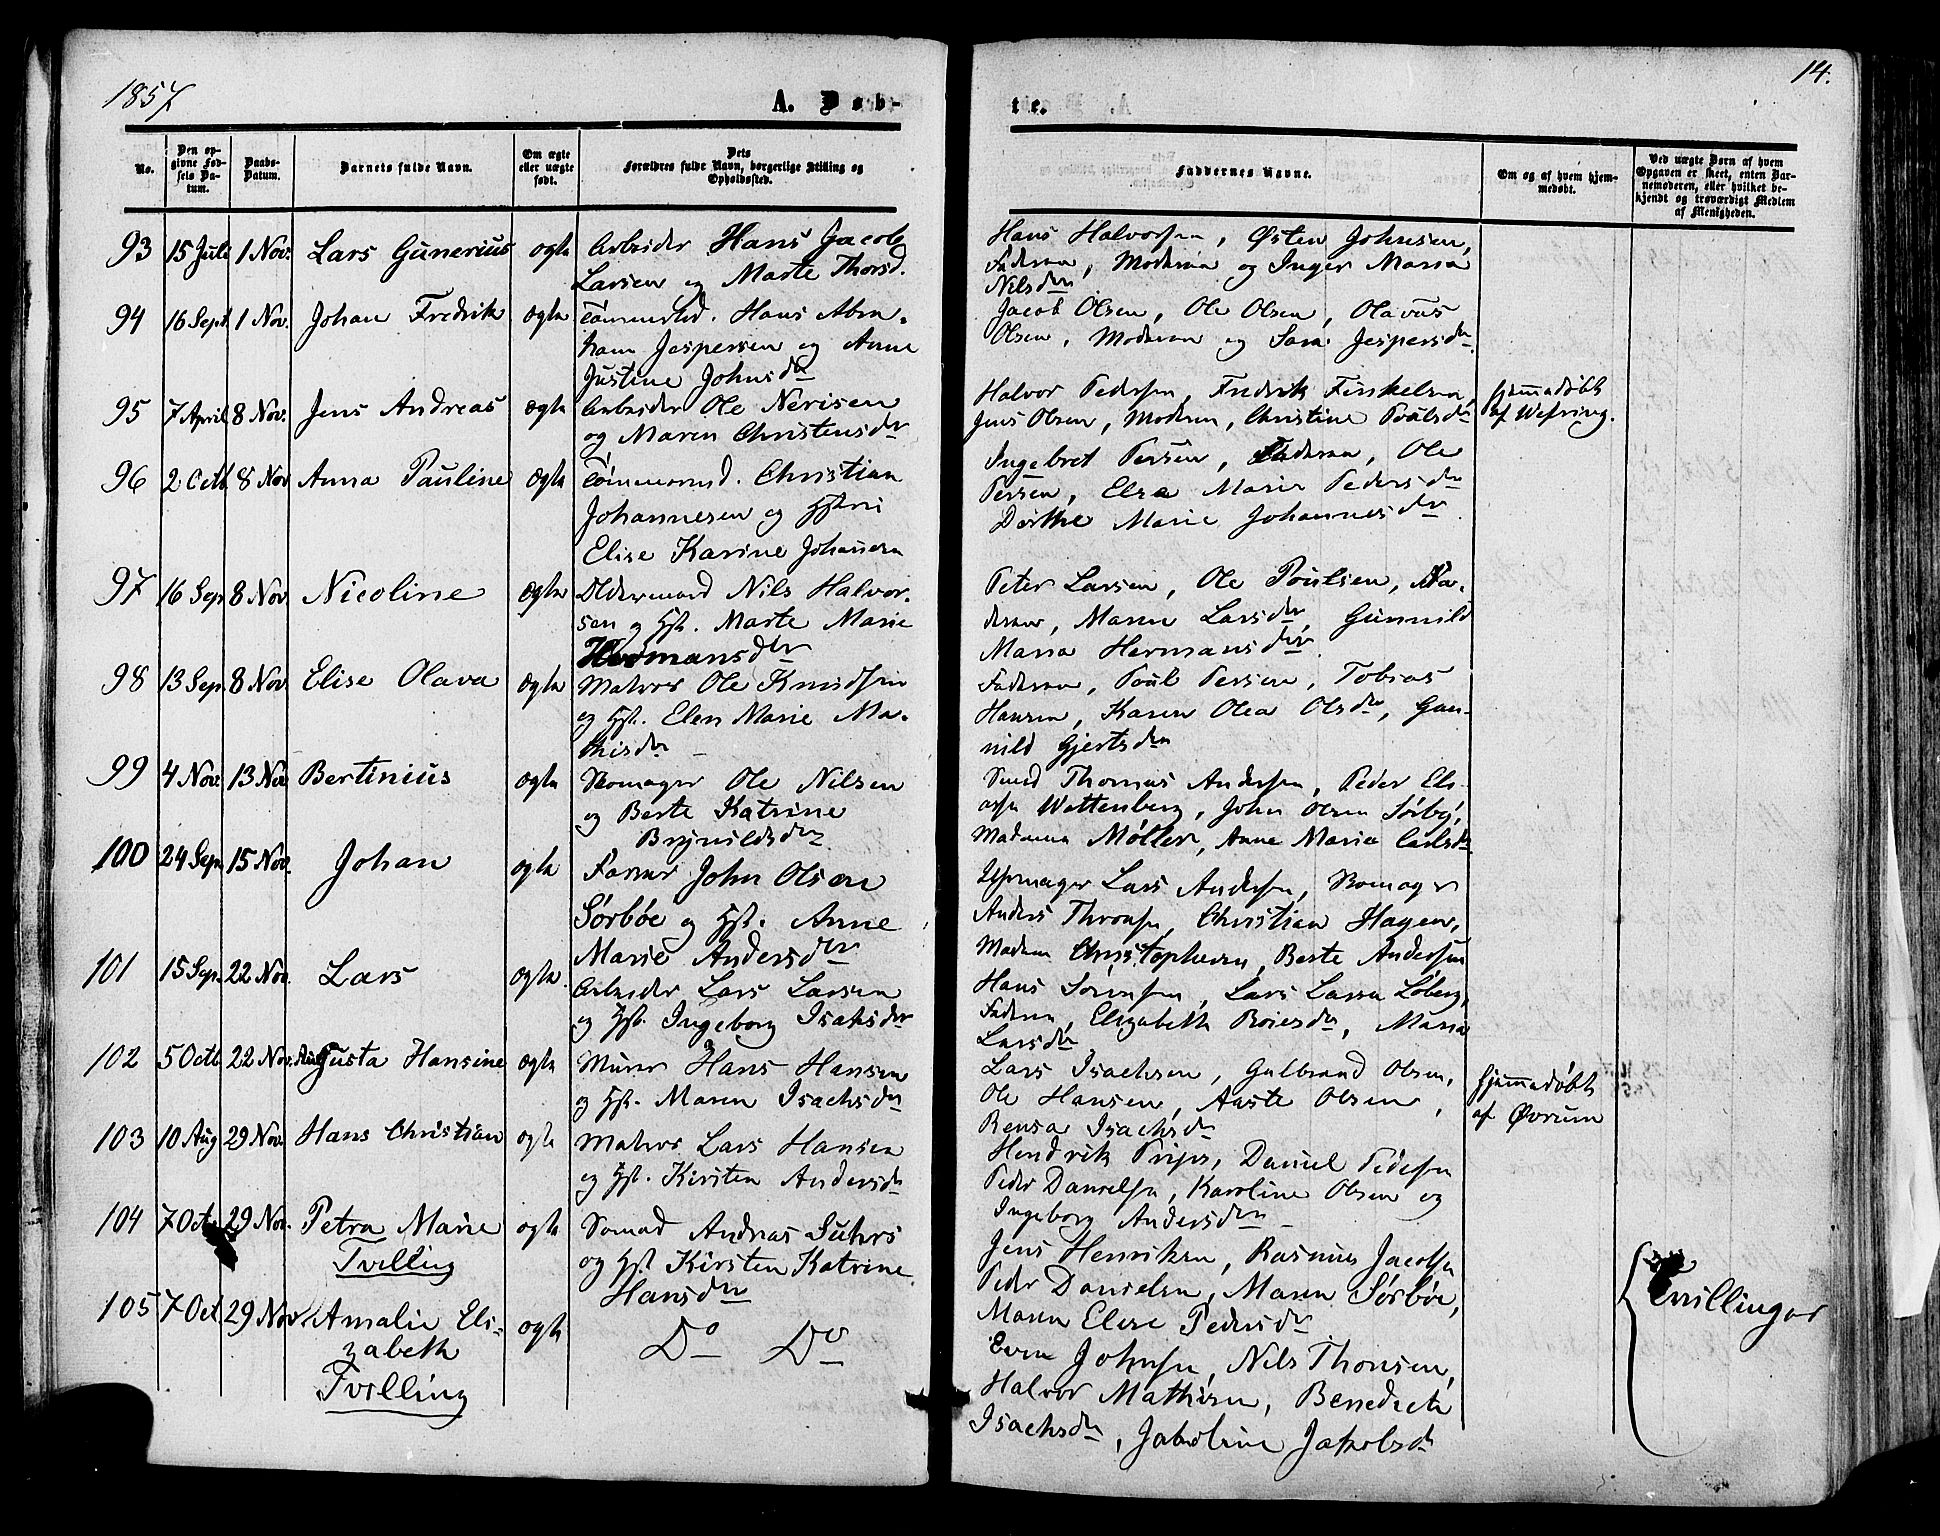 1857
A. Døb-
te.
14.
No.
Den op-
givne Fød-
sels Da-
tum.
Daabs-
Datum.
Barnets fulde Navn.
Om ægte
eller uægte
født.
Dets
Forældres fulde Navn, borgerlige Stilling og
Opholdssted.
Faddernes Navne.
Om og af hvem hjem-
medøbt.
Ved uægte Børn af hvem
Opgaven er skeet, enten Bar-
nemoderen, eller hvilket be-
kjendt og troværdigt Medlem
af Menigheden.
93 15 Juli 1 Nov. Lars Gunerius ægte Arbeider Hans Jacob
Larsen og Marte Thorsd.
Hans Halvorsen, Østen Johnsen,
Faderen, Moderen og Inger Maria
Nilsder
94 16 Sept. 1 Nov. Johan Fredrik ægte Tømmermd. Hans Abra-
ham Jespersen og Anne
Justine Johnsdr
Jacob Olsen, Ole Olsen, Olavus
Olsen, Moderen og Sara Jespersdr.
95 7 April 8 Nov. Jens Andreas ægte Arbeider Ole Nerisen
og Maren Christensdr
Halvor Pedersen, Fredrik Finkelsen,
Jens Olsen, Moderen, Christine Poulsdr
hjemmedøbt
af Wefring.
96 2 Octb 8 Nov Anna Pauline ægte Tømmermd. Christian
Johannesen og Hstr
Elise Karine Johansen
Ingebret Persen, Faderen, Ole
Persen, Elea Marie Pedersdr
Dorthe Marie Johannesdr
97 16 Sep 8 Nov Nicoline ægte Oldermand Nils Halvor-
sen og Hst. Marte Marie
Hermansdr
Peter Larsen, Ole Poulsen, Fa-
deren, Maren Larsdr, Gunnild
Maria Hermansdr
98 13 Sep. 8 Nov Elise Olava ægte Matros Ole Knudsen
og Hst. Elen Marie Ma-
thisdr
Faderen, Poul Persen, Tobias
Hansen, Karen Olea Olsdr, Gun-
nild Gjertsdr
99 4 Nov. 13 Nov Bertinius ægte Skomager Ole Nilsen
og Berte Katrine
Brynildsdr
Smed Thomas Andersen, Peder Eli-
Wettenberg, John Olsen Sørby,
Madame Møller, Anne Maria Carlsdr
100 24 Sep 15 Nov. Johan ægte Farver John Olsen
Sørbøe og Hst. Anne
Marie Andersdr
Lars Andersen, Skomager
Anders Thronsen, Christian Hagen,
Madam Christophersen, Berte Andersen
101 15 Sep. 22 Nov. Lars ægte. Arbeider Lars Larsen
og Hst. Ingeborg Isaksdr
Hans Sørensen, Lars Larsen Løberg,
Faderen, Elizabeth Boiesdr, Maria
Larsdr
102 5 Octb 22 Nov. Augusta Hansine ægte Murer Hans Hansen
og Hst. Maren Isachsdr
Lars Isachsen, Gulbrand Olsen,
Ole Hansen, Aaste Olsen,
Rensa Isachsdr
hjemmedøbt
af Øvrum
103 10 Aug 29 Nov. Hans Christian ægte Matros Lars Hansen
og Hst. Kirsten Andersdr
Hendrik Daniel Pedersen
Peder Danielsen, Karoline Olsen og
Ingeborg Andersdr
104 7 Octb 29 Nov. Petra Marie
Tvilling
ægte Sømand Andreas Suhrs
og Hst Kirsten Katrine
Hansdr
Jens Henriksen, Rasmus Jacobsen
Peder Danielsen, Maren Sørbøe,
Maren Elise Pedersdr
105 7 Oct 29 Nov Amalie Eli-
zabeth
Tvilling
ægte Do Do
Even Johnsen, Nils Thonsen,
Halvor Mathisen, Benedicte
Isachsdr, Jakobine Jakobsdr
Tvillinger